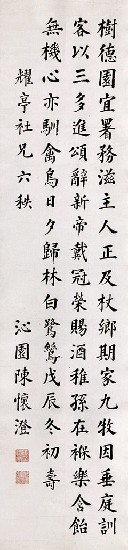 樹德園宜署務滋主人正及杖鄉期家九牧因垂庭訓
客以三多進頌辭新帝戴冠榮賜酒稚孫在褓樂含飴
無機心亦馴禽鳥日夕歸林白鷺鷥戊辰冬初壽
耀亭社兄六秩
沁園陳懷澄